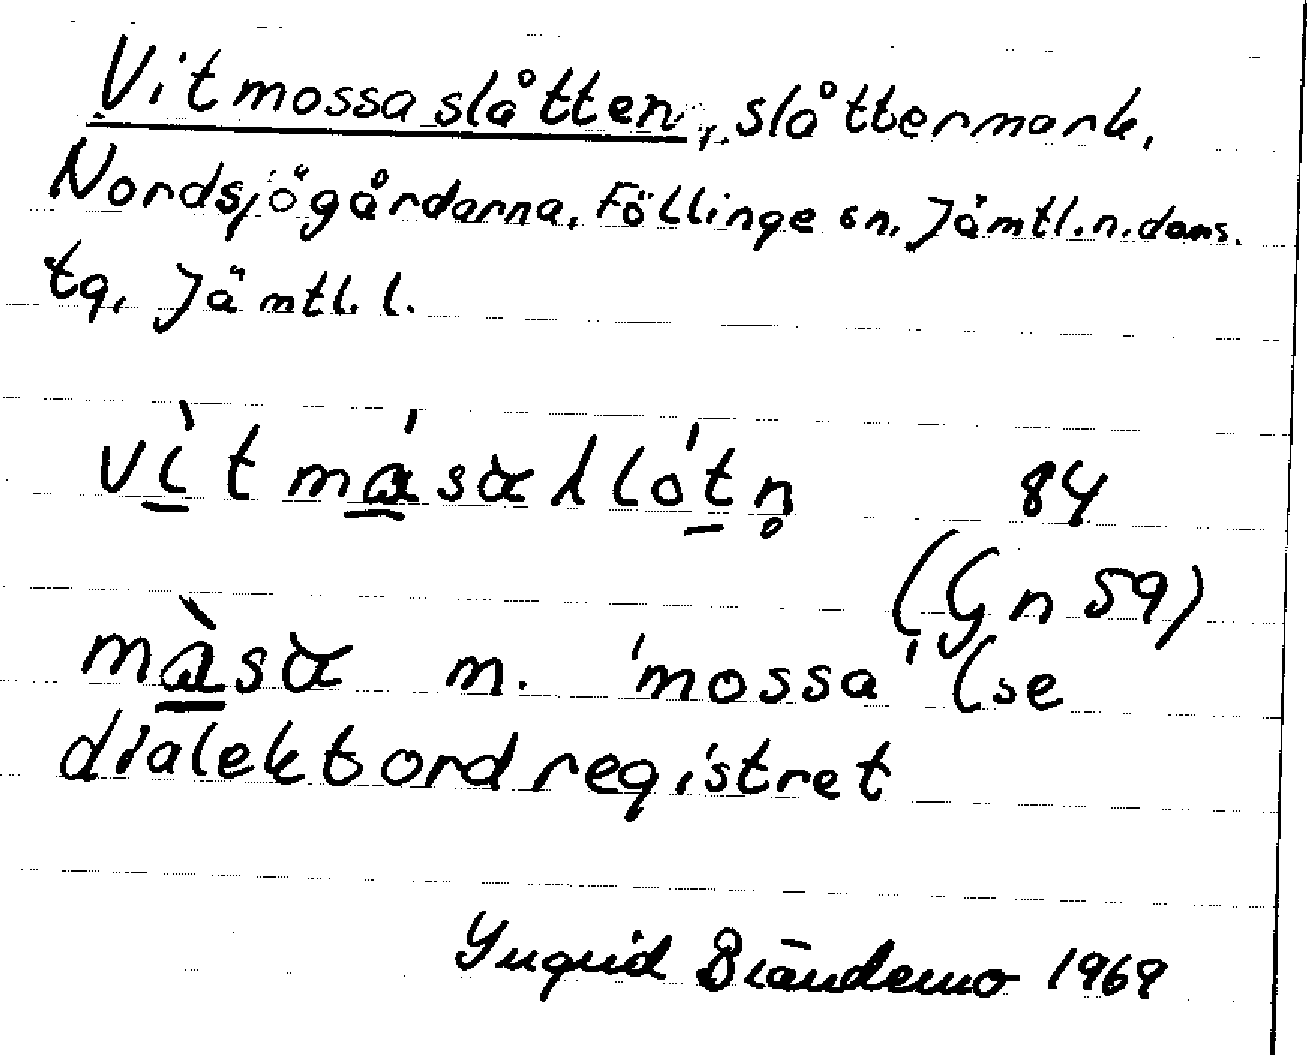 Vitmossaslåtten, slåttermark,
Nordsjögårdarna, Föllinge sn, Jämtl.n.doms.
tg, Jämtl.l.
vìtmásàλlótn̥ 84
(Gn 59)
màsà m. 'mossa' (se
dialektordregistret
Yngrid Brändemo 1969